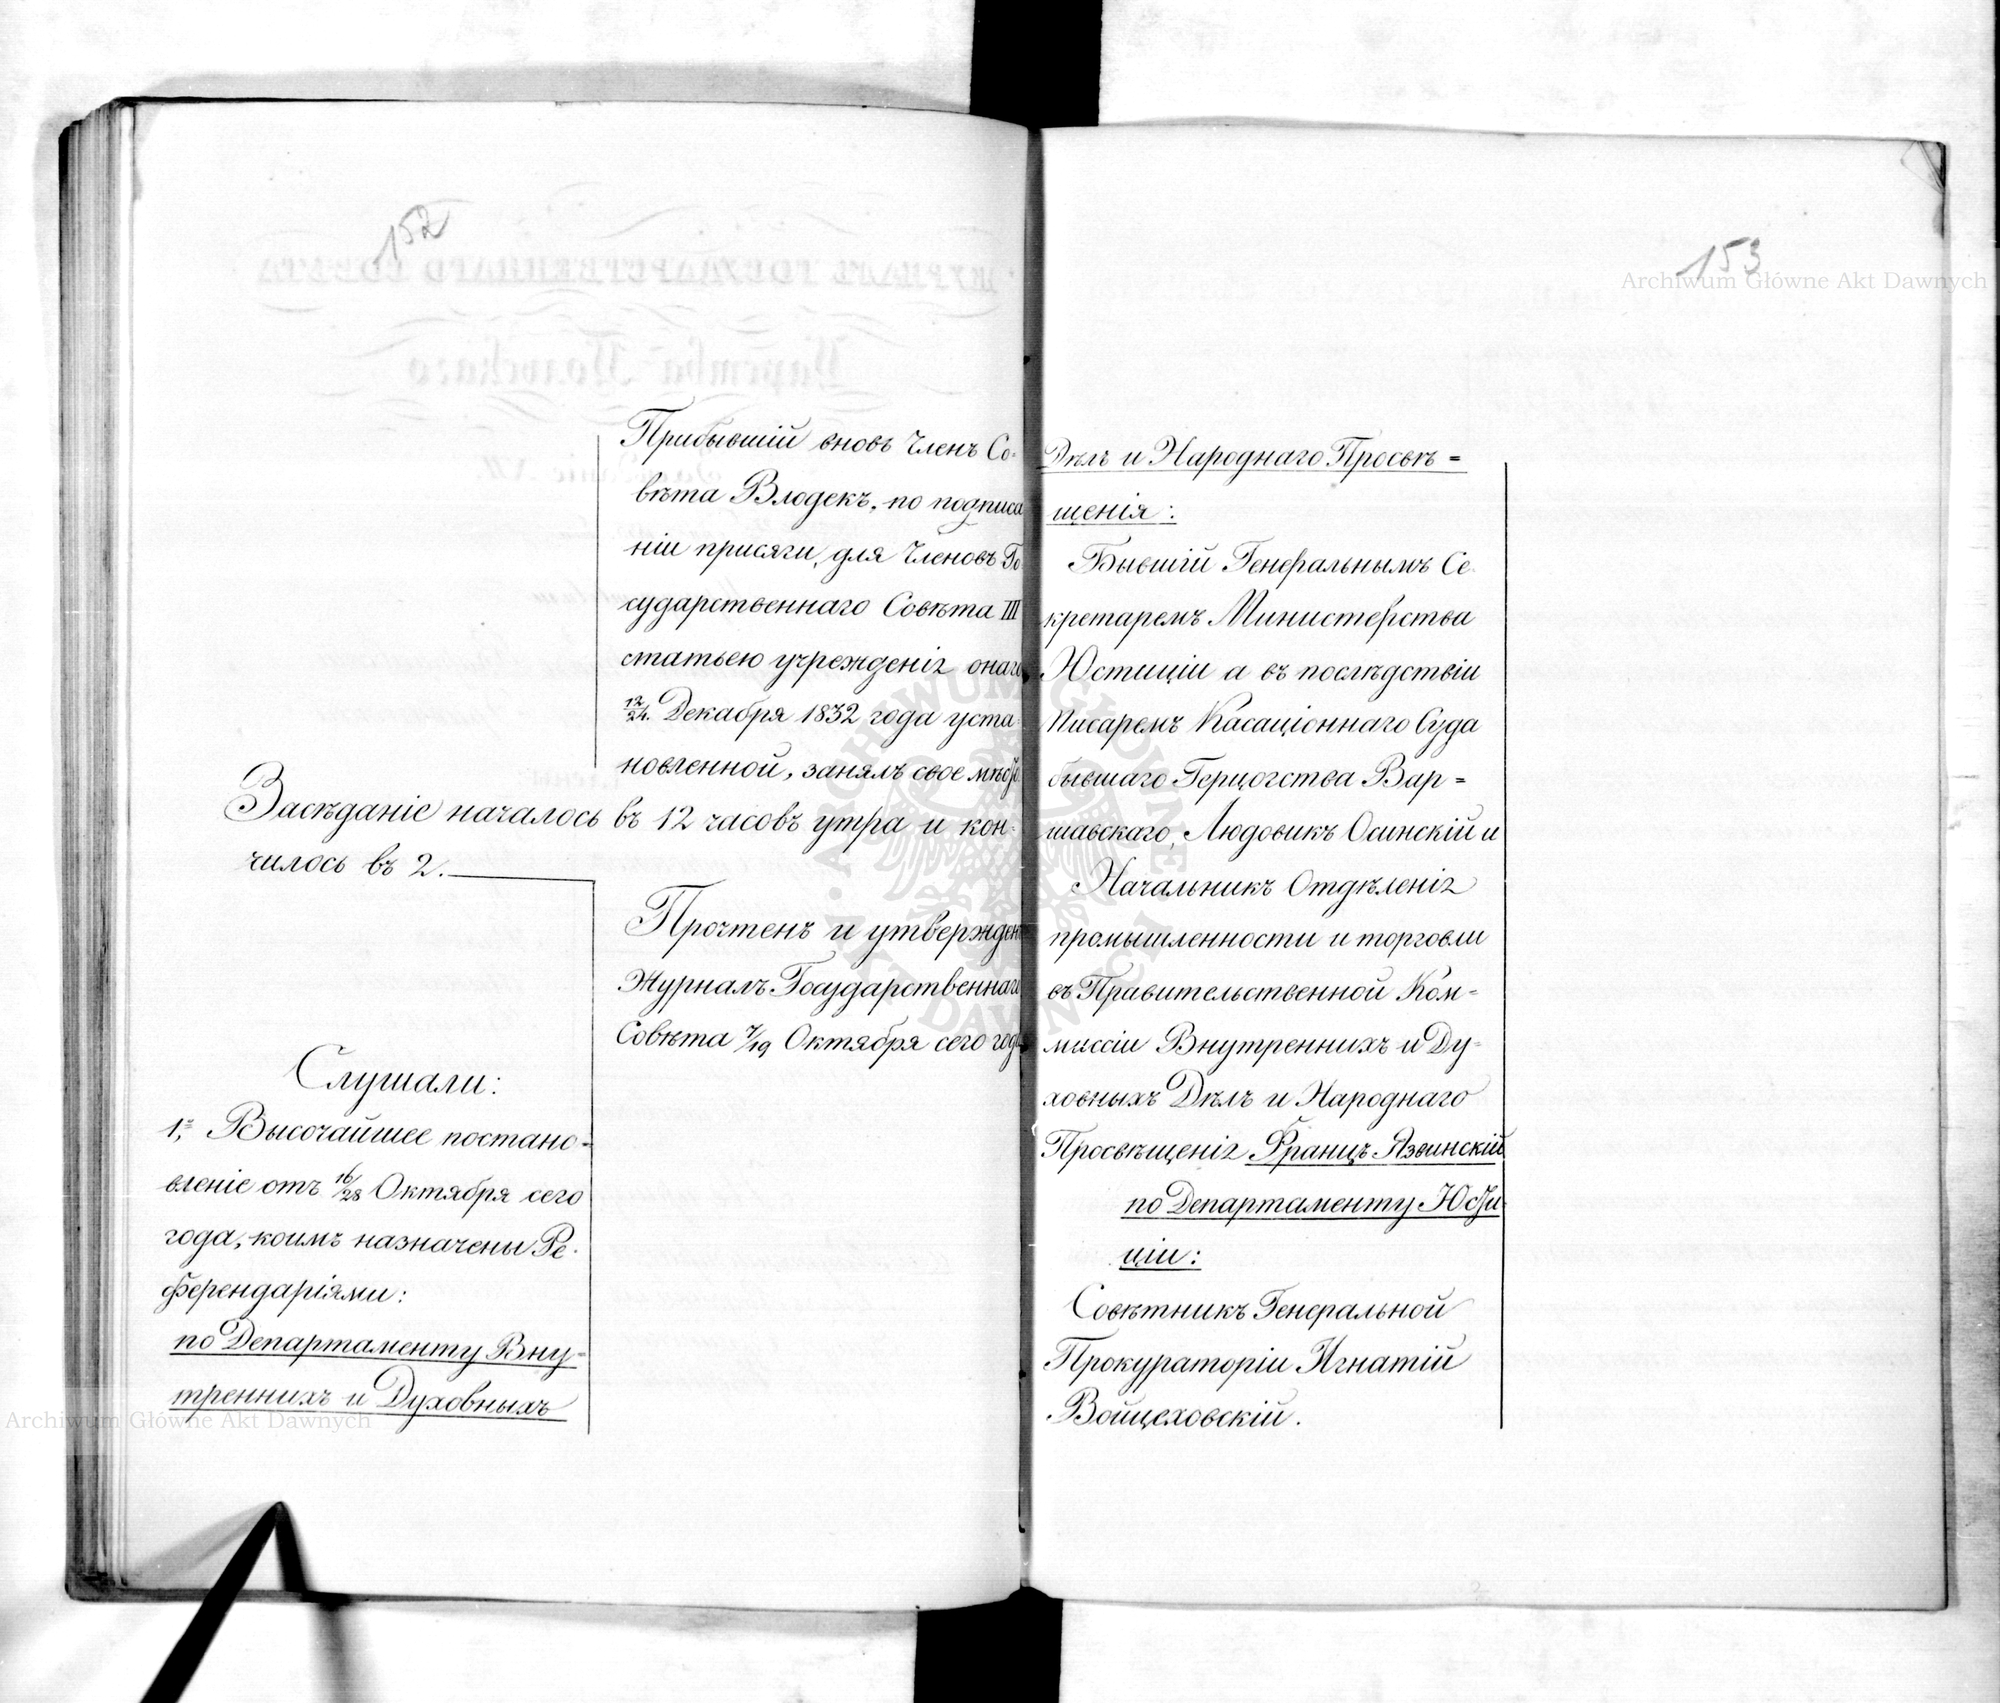 152
Прибывшій вновь Членъ Со-
вѣта Влодекъ, по подписа
ніи присяги, для Членовъ Го
сударственнаго Совѣта III
статьею учрежденія онаго
12/24. Декабря 1832 года уста-
новленной, занялъ свое мѣсто.
Засѣданіе началось въ 12 часовъ утра и кон-
чилось въ 2.
Прочтенъ и утвержденъ
Журналъ Государственнаго
Совѣта 7/19 Октября сего года
Слушали:
1, Высочайшее постано-
вленіе отъ 16/28 Октября сего
года, коимъ назначены Ре-
ферендаріями:
по Департаменту Вну-
треннихъ и Духовныхъ
153
Archiwum Główne Akt Dawnych
Дѣлъ и Народнаго Просвѣ=
щенія:
Бывшій Генеральнымъ Се-
кретаремъ Министерства
Юстиціи а въ послѣдствіи
Писаремъ Касаціоннаго Суда
бывшаго Герцогства Вар=
шавскаго, Людовикъ Осинскій и
Начальникъ Отдѣленія
промышленности и торговли
въ Правительственной Ком=
миссіи Внутреннихъ и Ду-
ховныхъ Дѣлъ и Народнаго
Просвѣщенія Францъ Язвинскій
по Департаменту Юсти-
ціи:
Совѣтникъ Генеральной
Прокураторіи Игнатій
Войцеховскій.
Archiwum Główne Akt Dawnych
ARCHIWUM GŁÓWNE AKT DAWNYCH